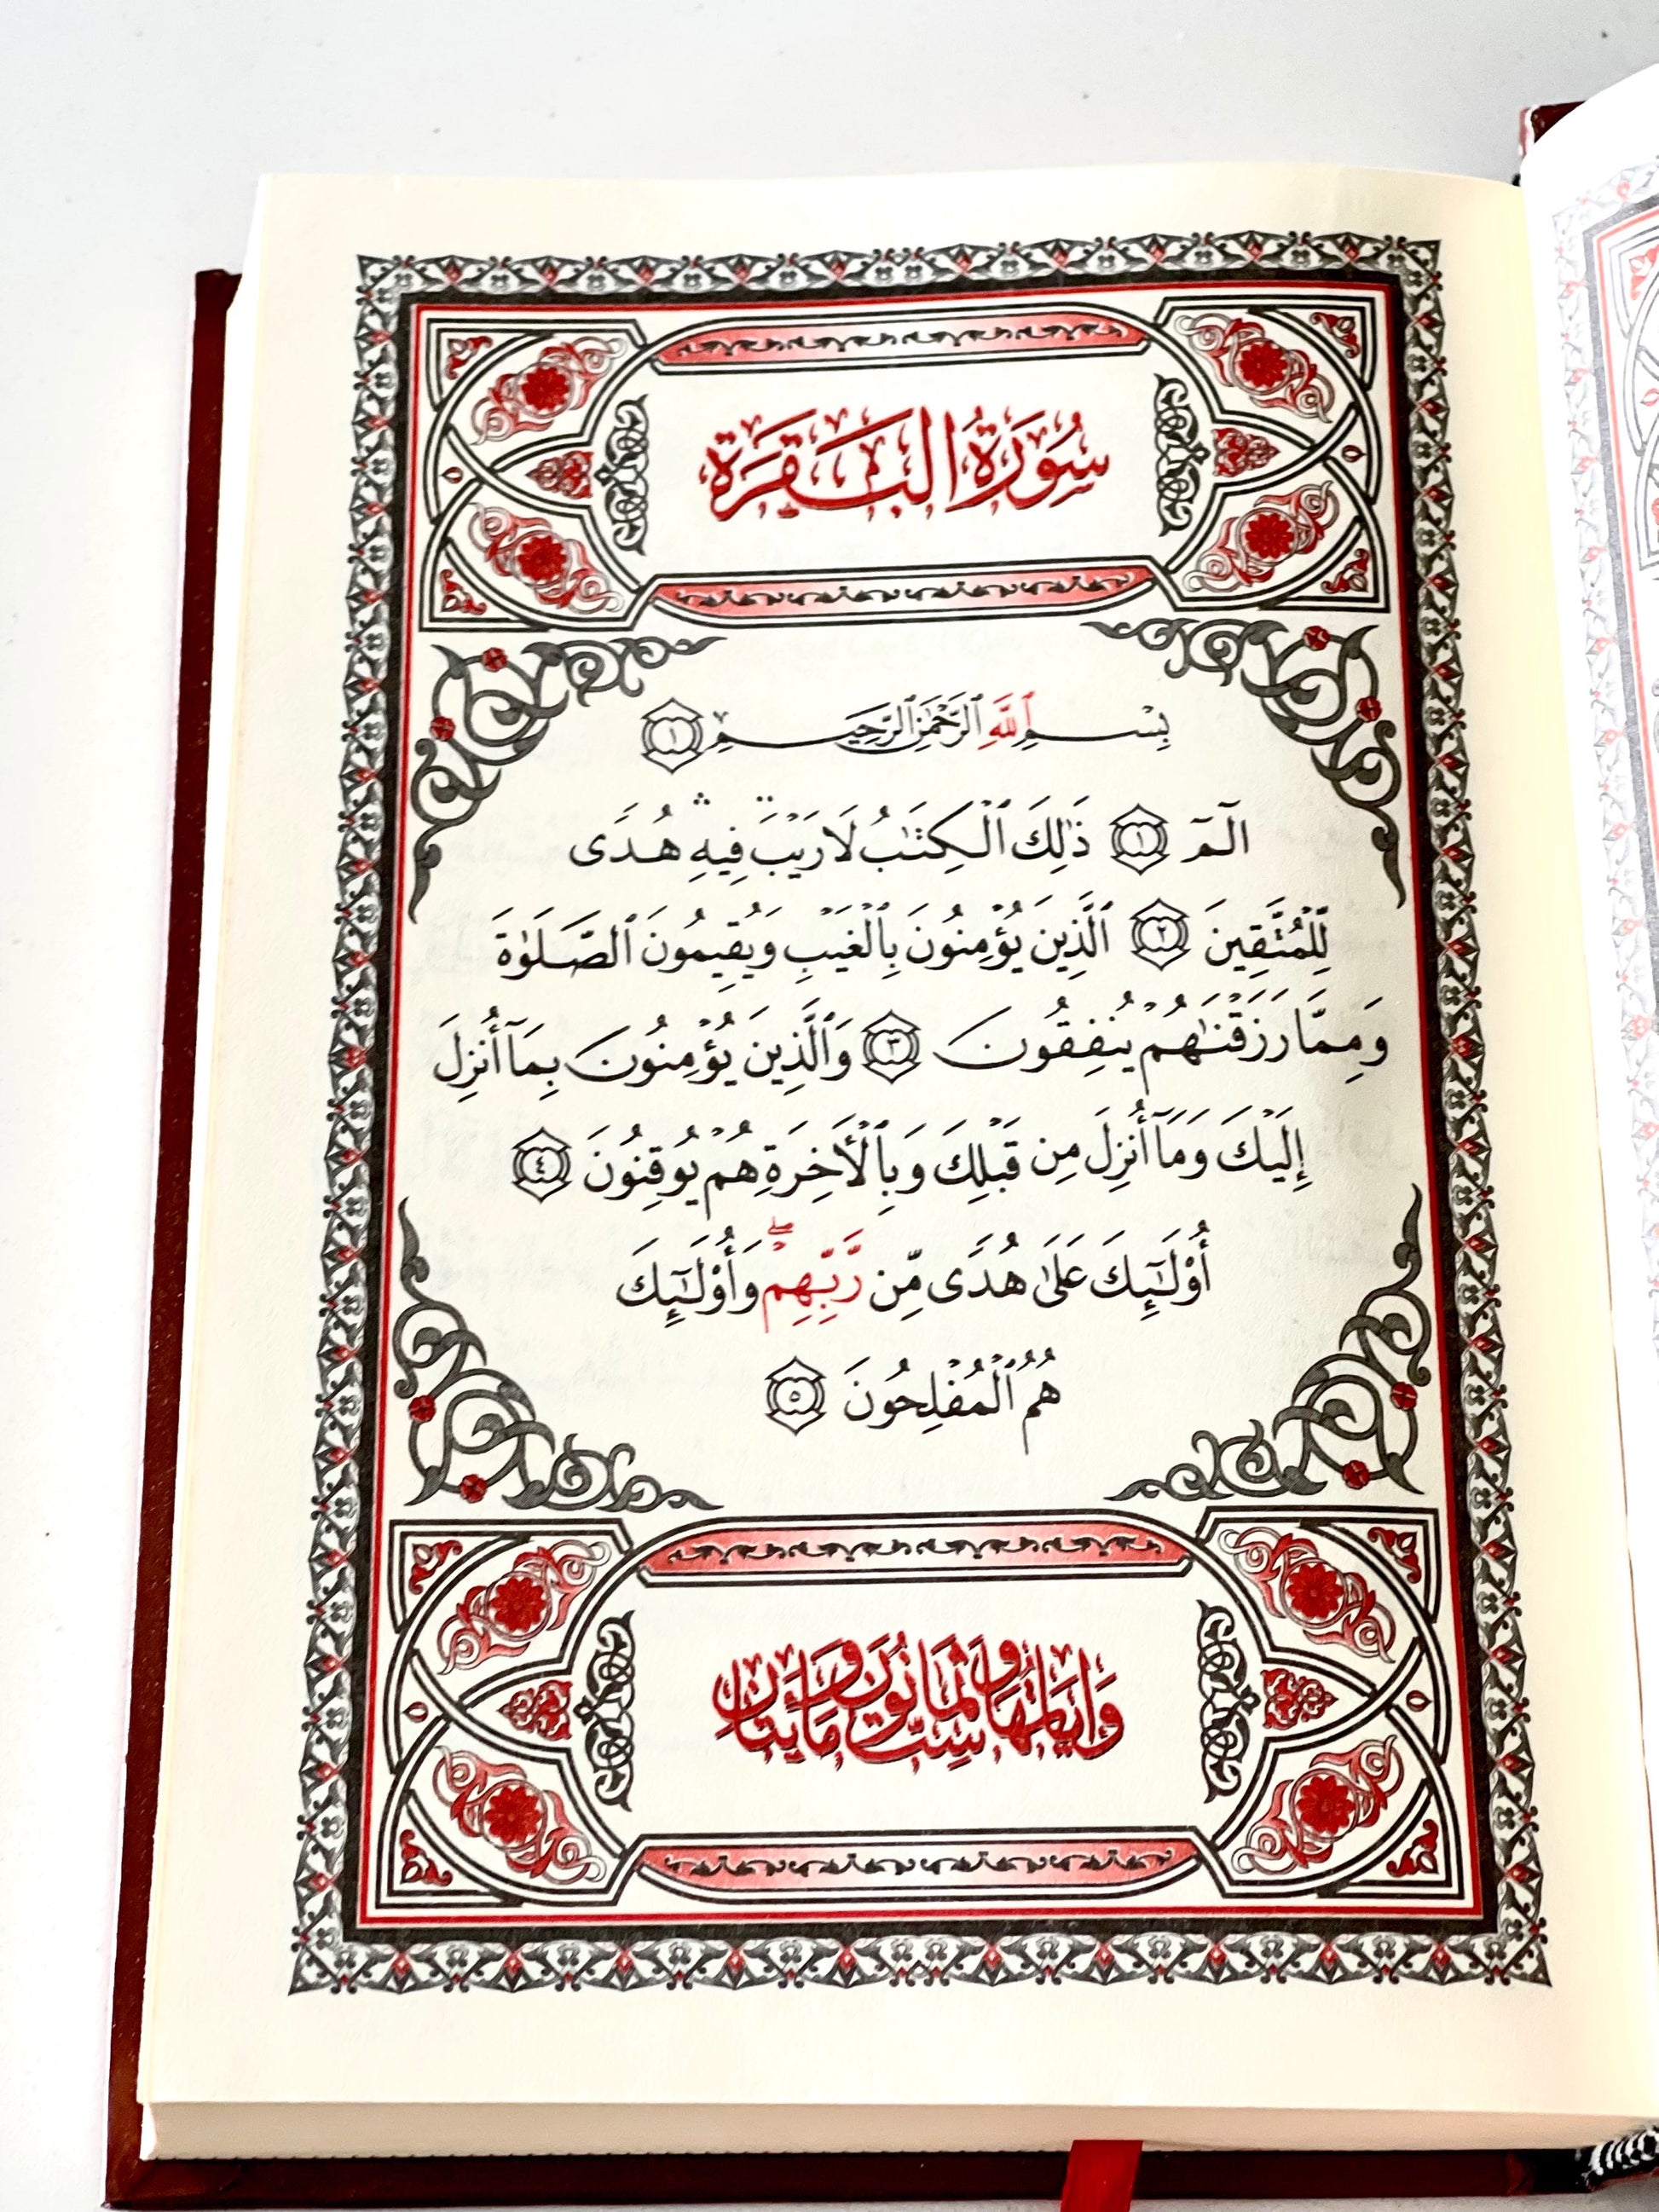 سُورَةُ الْبَقَرَةِ
بِسْمِ ٱللَّهِ ٱلرَّحْمَٰنِ ٱلرَّحِيمِ ١
الٓمٓ ١ ذَٰلِكَ ٱلْكِتَٰبُ لَا رَيْبَ ۛ فِيهِ ۛ هُدًى
لِّلْمُتَّقِينَ ٢ ٱلَّذِينَ يُؤْمِنُونَ بِٱلْغَيْبِ وَيُقِيمُونَ ٱلصَّلَوٰةَ
وَمِمَّا رَزَقْنَٰهُمْ يُنفِقُونَ ٣ وَٱلَّذِينَ يُؤْمِنُونَ بِمَآ أُنزِلَ
إِلَيْكَ وَمَآ أُنزِلَ مِن قَبْلِكَ وَبِٱلْأَخِرَةِ هُمْ يُوقِنُونَ ٤
أُو۟لَٰٓئِكَ عَلَىٰ هُدًى مِّن رَّبِّهِمْ ۖ وَأُو۟لَٰٓئِكَ
هُمُ ٱلْمُفْلِحُونَ ٥
وَآيَاتُهَا سِتٌّ وَثَمَانُونَ وَمَائَتَانِ